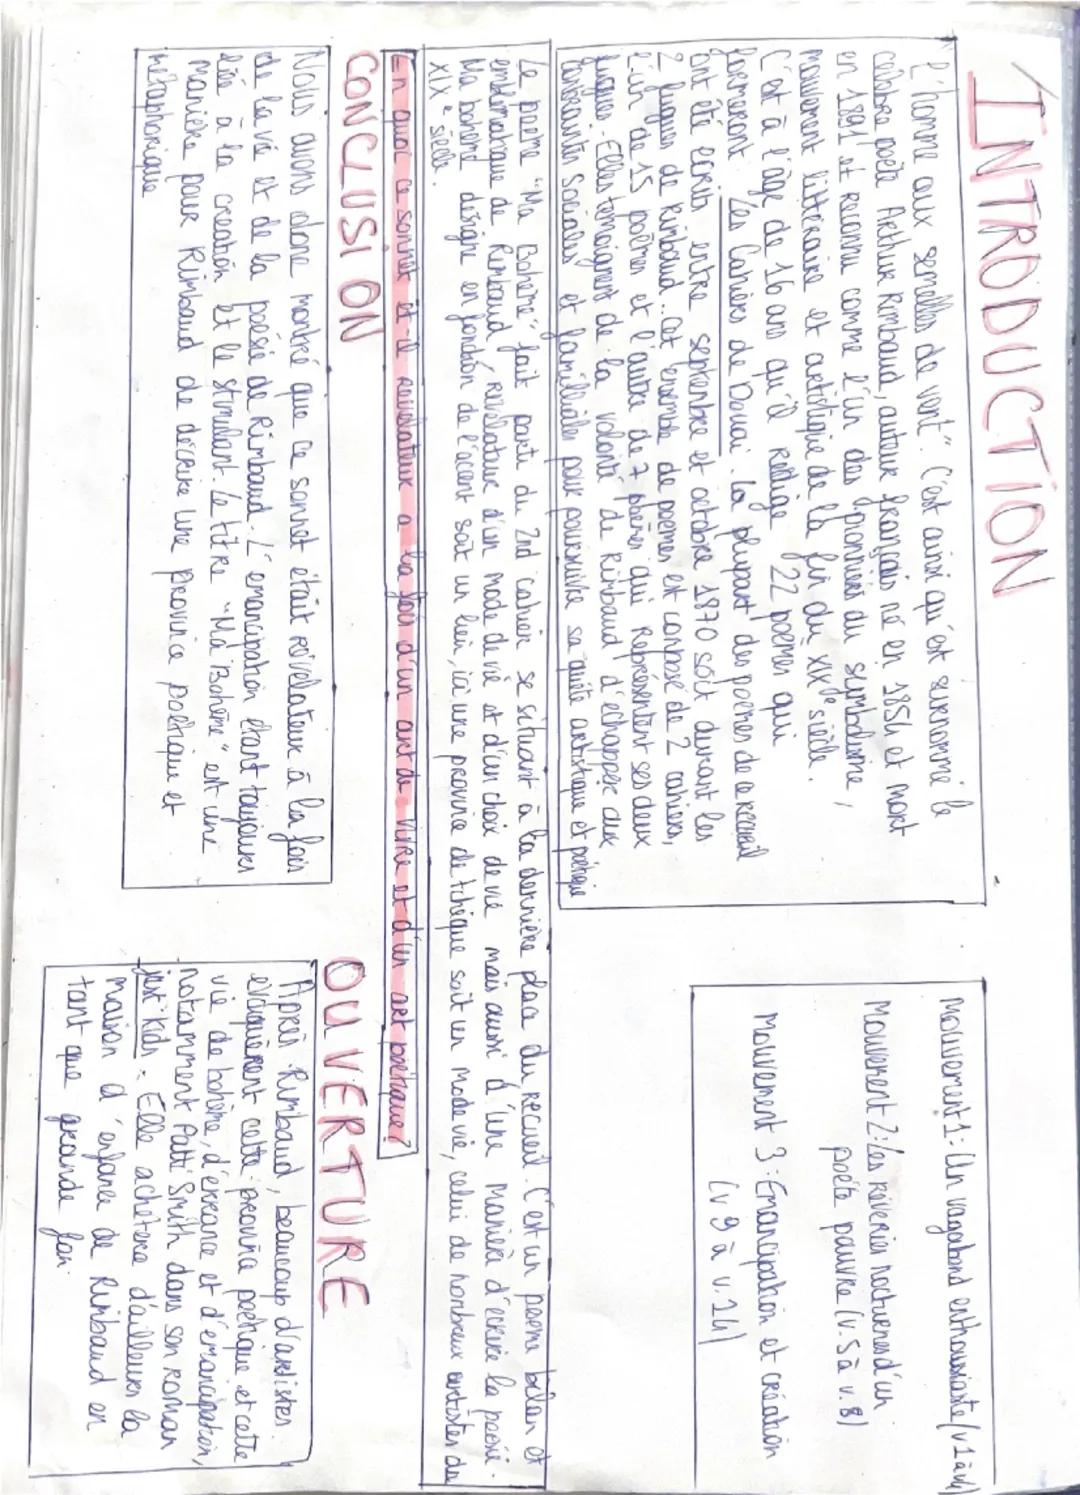 INTRODUCTION
"L'homme aux semelles de vent". C'est ainsi qu'est surnommé le
célèbre poète Arthur Rimbaud, auteur français né en 1854 et mort
en 1891 et reconnu comme l'un des pionniers du symbolisme,
mouvement littéraire et artistique de la fin du XIXe siècle.
C'est à l'âge de 16 ans qu'il rédige 22 poèmes qui
formeront Les Cahiers de Douai. La plupart des poèmes de ce recueil
ont été écrits entre septembre et octobre 1870 soit durant les
2 fugues de Rimbaud. Cet ensemble de poèmes est composé de 2 cahiers,
l'un de 15 poèmes et l'autre de 7 poèmes qui représentent ses deux
fugues. Elles temoignent de la volonté de Rimbaud d'échapper aux
contraintes sociales et familliales pour poursuivre sa quête artistique et poétique
Le poème "Ma Bohème" fait parti du 2nd cahier se situant à la dernière place du recueil. C'est un poème bilan et
emblématique de Rimbaud, révélateur d'un mode de vie et d'un choix de vie mais aussi d'une manière d'écrire la poésie.
Ma bohème désigne en fonction de l'accent soit un lieu, ici une province de tchéque soit un mode vie, celui de nombreux artistes du
XIXe siècle.
En quoi ce sonnet est-il révélateur à la fois d'un art de vivre et d'un art poétique?
CONCLUSION
Nous avons donc montré que ce sonnet était révelateur à la fois
de la vie et de la poésie de Rimbaud. L'émancipation étant toujours
liée à la création et le stimulant. Le titre "Ma Bohème" est une
manière pour Rimbaud de décrire une province poétique et
métaphorique
Mouvement 1: Un vagabond enthousiaste (v1 à v4)
Mouvement 2: Les rêveries nocturnes d'un
poète pauvre (v.5 à v.8)
Mouvement 3: Emancipation et création
(v 9 à v.14)
OUVERTURE
Après Rimbaud, beaucoup d'artistes
évoquèrent cette province poétique et cette
vie de bohème, d'errance et d'émancipation,
notamment Patti Smith dans son roman
just kids. Elle achètera d'ailleurs la
maison d'enfance de Rimbaud en
tant que grande fan.